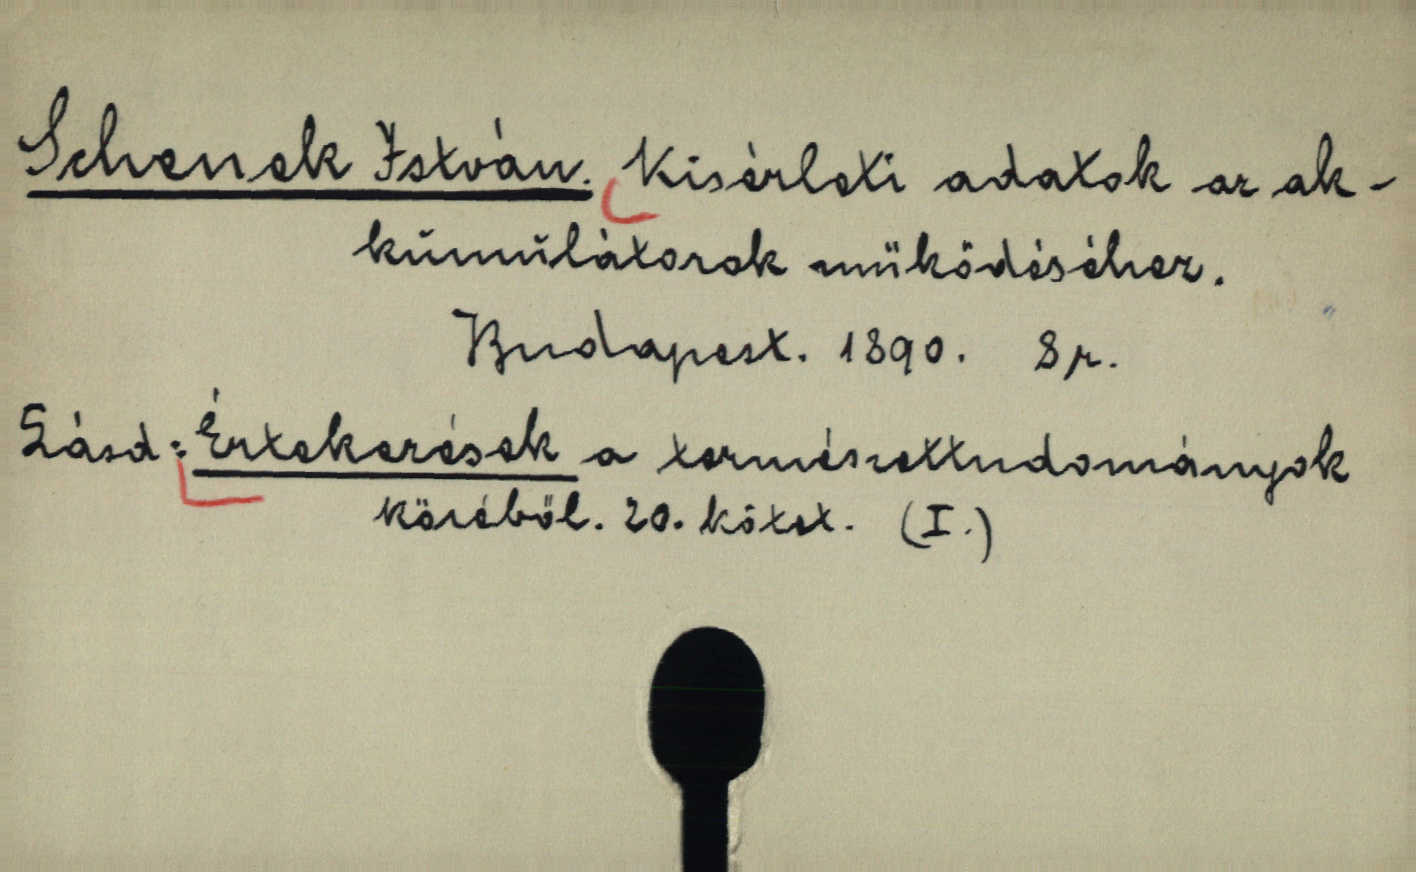 Schenek István. Kisérleti adatok az ak-
kŭmŭlátorok müködéséhez.
Budapest. 1890. 8r.
Lásd: Értekezések a természettudományok
köréböl. 20. kötet. (I.)